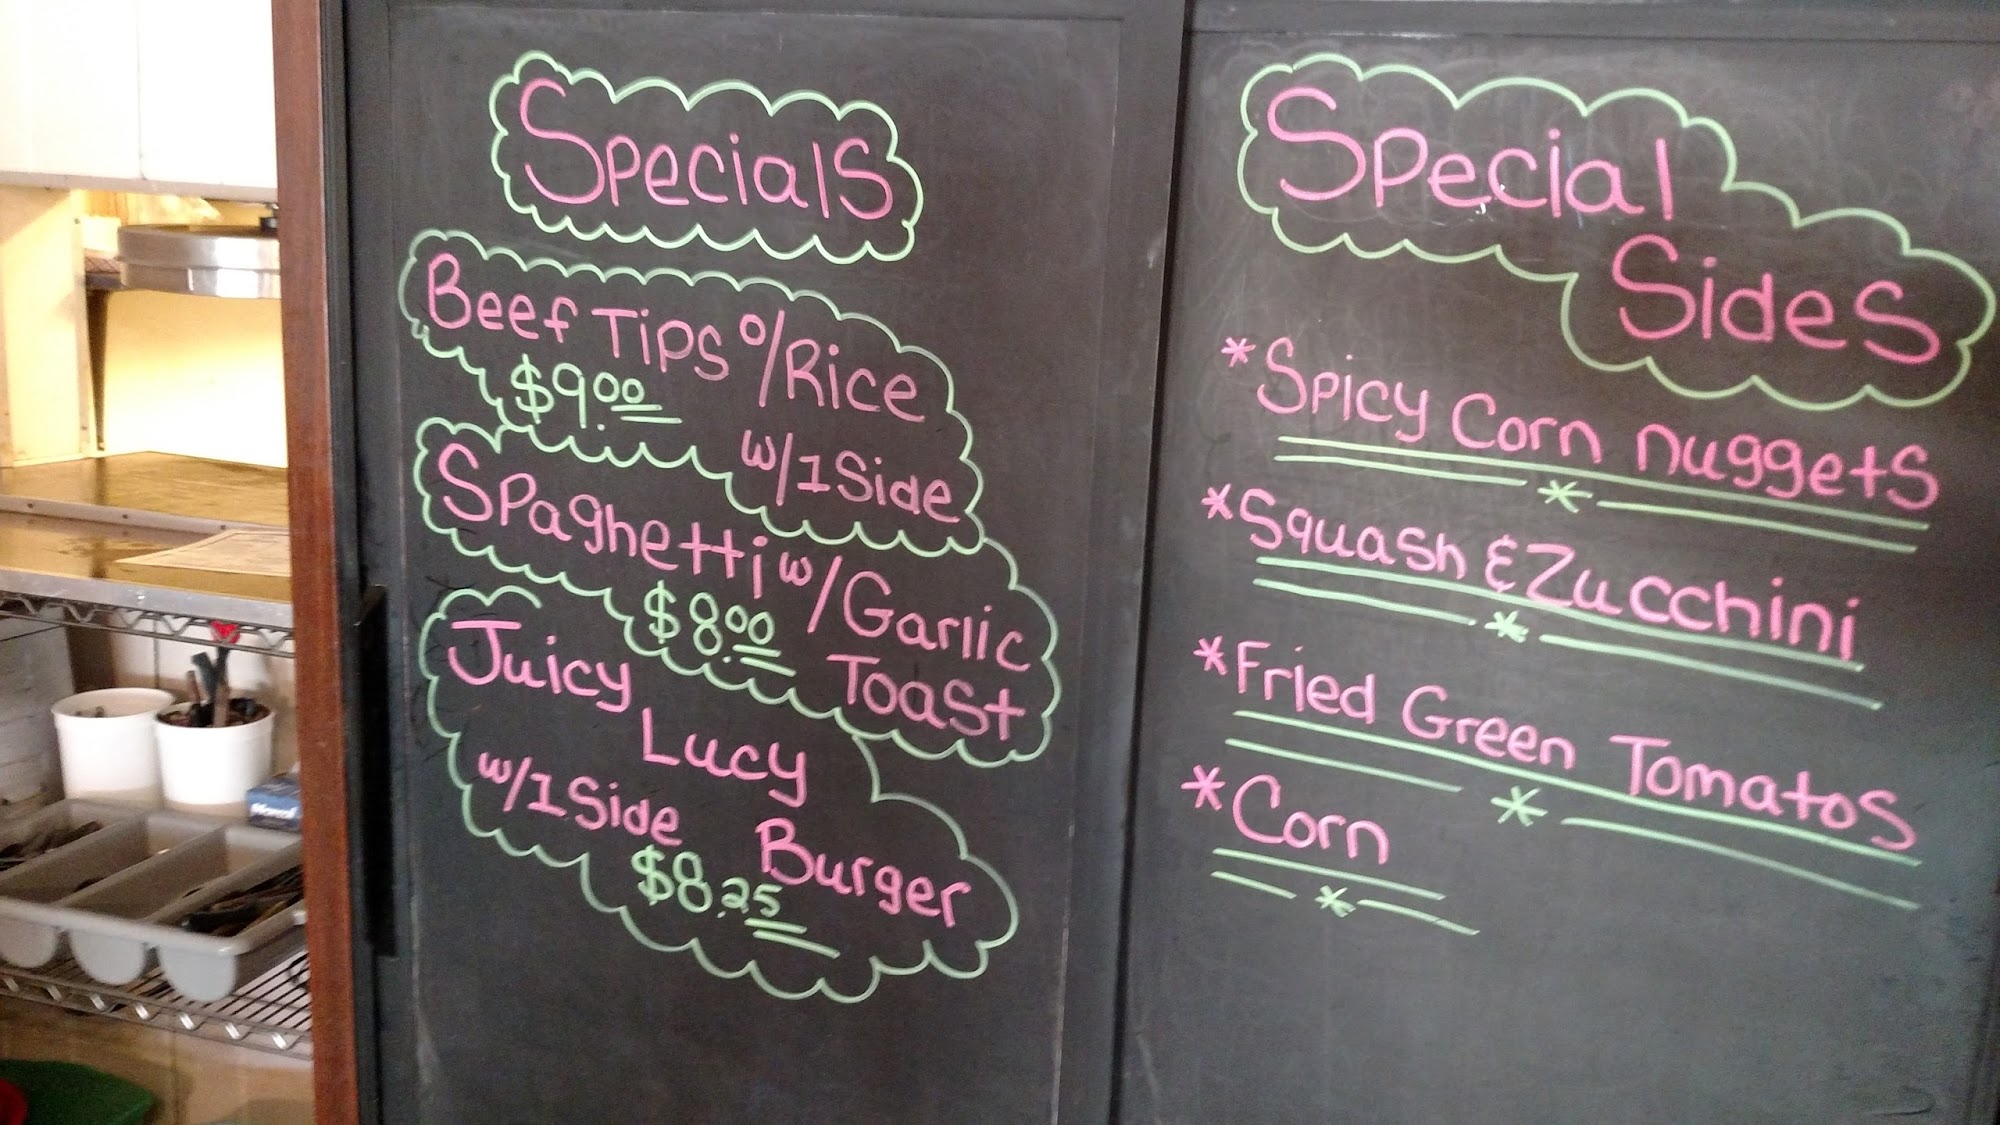 Specials
Beef Tips o/Rice
$9.00
w/1 Side
Spaghetti w/Garlic
$8.00 Toast
Juicy
Lucy
w/1 Side Burger
$8.25
Special
Sides
*Spicy Corn nuggets
*Squash & Zucchini
*Fried Green Tomatos
*Corn